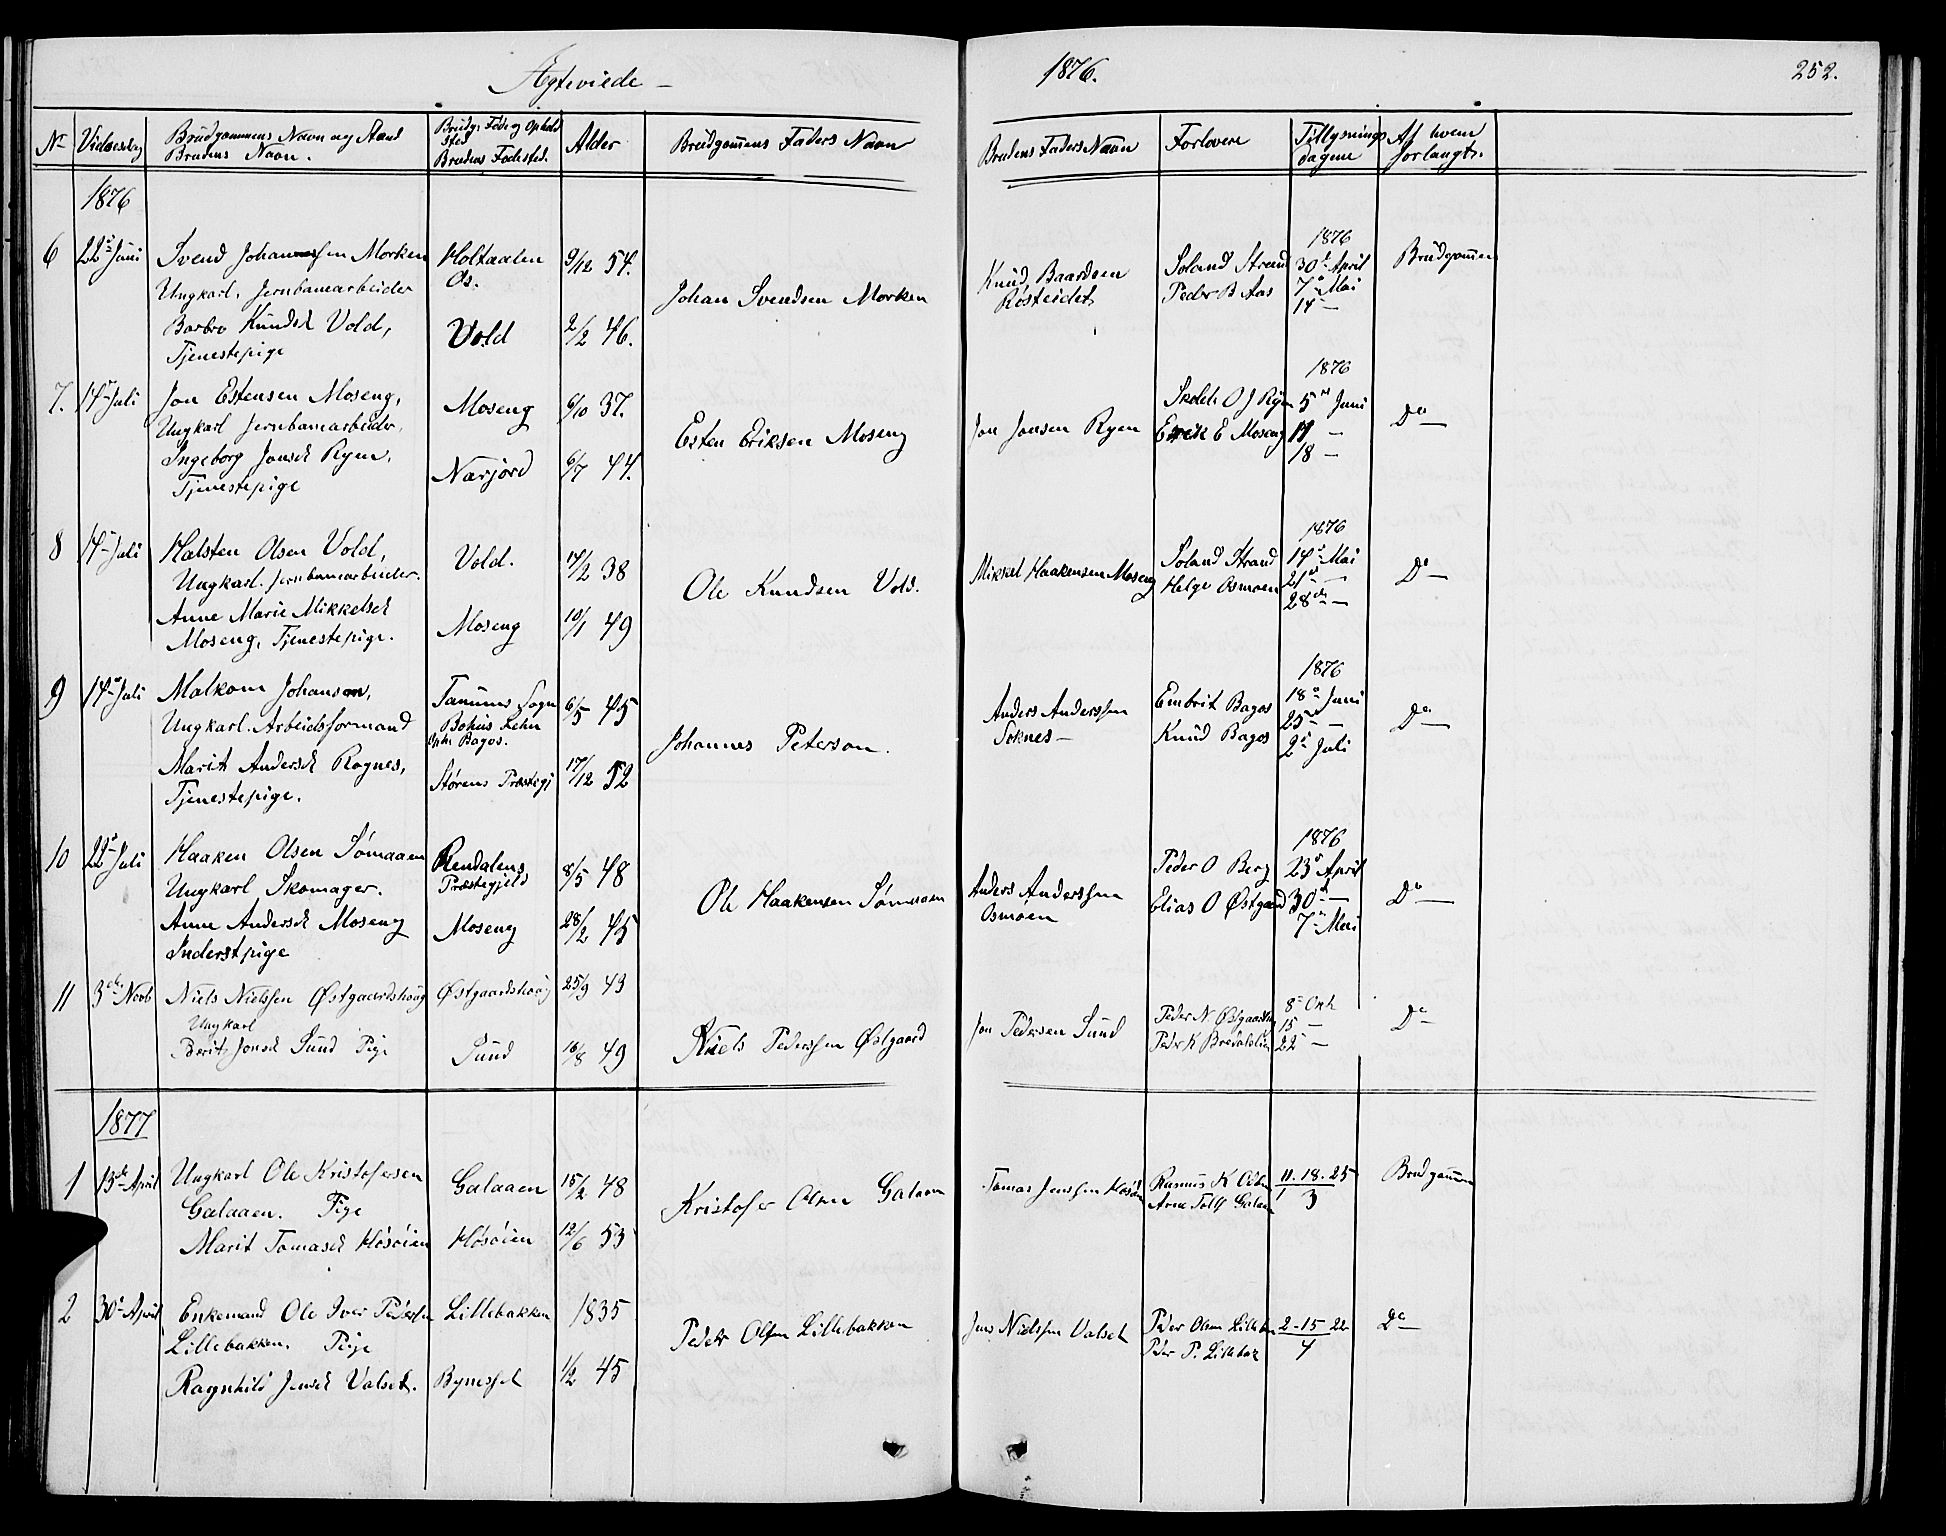 Ægteviede —
1876.
252.
No Vielsesdag Brudgommens Navn og Stand Brudens Navn. Brudg. Føde og Opholdssted Brudens Fødested. Alder Brudgommens Faders Navn Brudens Faders Navn Forlovere Tillysningsdagene Af hvem forlangt.
1876
6 22de Juni Svend Johannessen Morken Holtaalen 9/12 54.
Ungkarl, Jernbanearbeider Os.
Barbro Knudsd Vold, Vold 2/2 46.
Tjenestepige
Johan Svendsen Morken
Knud Baardsen
Røsteidet
Soland Strand
Peder B Aas
1876
30te April
7de Mai
14 —
Brudgommen
7. 14de Juli Jon Estensen Moseng, Moseng 6/10 37.
Ungkarl Jernbanearbeider,
Ingeborg Jonsd Ryen, Narjord 6/7 44.
Tjenestepige
Esten Eriksen Moseng
Jon Jonsen Ryen
O J Ryen
Erik E Moseng
1876
5te Juni
11 —
18 —
Do —
8 14de Juli Halsten Olsen Vold, Vold. 17/2 38
Ungkarl. Jernbanearbeider.
Anne Marie Mikkelsd Moseng 10/1 49
Moseng, Tjenestepige.
Ole Knudsen Vold.
Mikkel Haakensen Moseng
Soland Strand
Helge Osmoen
1876
14de Mai
21de —
28de —
Do —
9 14de Juli Malkom Johanson, Tanums Sogn 6/5 45
Ungkarl. Arbeidsformand Bohus Lehn
Oph. Bagos.
Marit Andersd Rognes, Størens Præstegj 17/12 52
Tjenestepige.
Johannes Peterson.
Anders Anderssen
Soknes —
Embrit Bagos
Knud Bagos
1876
18de Juni
25de —
2de Juli
Do —
10 22de Juli Haaken Olsen Sømaaen Rendalens 8/5 48
Ungkarl Skomager. Præstegjeld
Anne Andersd Moseng Moseng 28/2 45
Inderstpige
Ole Haakensen Sømaaen
Anders Anderssen
Osmoen
Peder O Berg
Elias O Østgaard
1876
23de April
30te —
7de Mai
Do —
11 3die Novb Niels Nielssen Østgaardshoug Østgaardshoug 25/9 43
Ungkarl
Berit Jonsd Sund Pige Sund 16/8 49
Niels Pederssen Østgaard
Jon Pedersen Sund
Peder N Østgaardshoug
Peder K
8de Okt
15 —
22 —
Do —
1877
1 13de April Ungkarl Ole Kristofersen Galaaen 15/2 48
Galaaen. Pige
Marit Tomasd Høsøien Høsøien 12/6 53
Kristofer Olsen Galaaen
Tomas Jenssen Høsøien
Rasmus K
Arne Galaaen
11. 18. 25
3
Brudgommen
2 30te April Enkemand Ole Iver Pedersen Lillebakken 1835
Lillebakken. Pige
Ragnhild Jensd Valset. Bynesset 1/2 45
Peder Olsen Lillebakken
Jens Nielssen Valset
Peder Olsen Lillebak
Peder P. Lillebak
2 - 15 22
4
Do